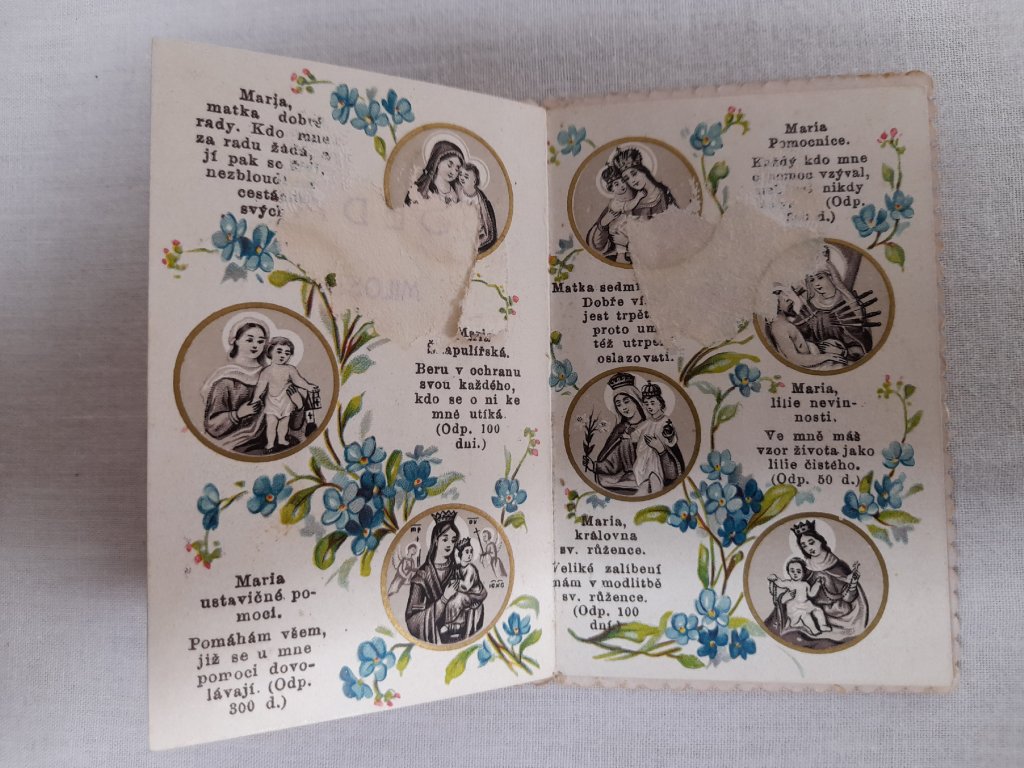 Maria,
matka dobré
rady. Kdo mne
za radu žádá,
jí pak se
nezbloudí
cestách
svých
Maria
Škapulířská.
Beru v ochranu
svou každého,
kdo se o ni ke
mně utíká.
(Odp. 100
dni.)
Maria
ustavičné po-
moci.
Pomáhám všem,
již se u mne
pomoci dovo-
lávají. (Odp.
300 d.)
Maria
Pomocnice.
Každý kdo mne
o pomoc vzýval,
nikdy
(Odp.
d.)
Matka sedmi
Dobře ví
jest trpět
proto um
též utrpe
oslazovati.
Maria,
lilie nevin-
nosti.
Ve mně máš
vzor života jako
lilie čistého.
(Odp. 50 d.)
Maria,
královna
sv. růžence.
Veliké zalíbení
mám v modlitbě
sv. růžence.
(Odp. 100
dní.)